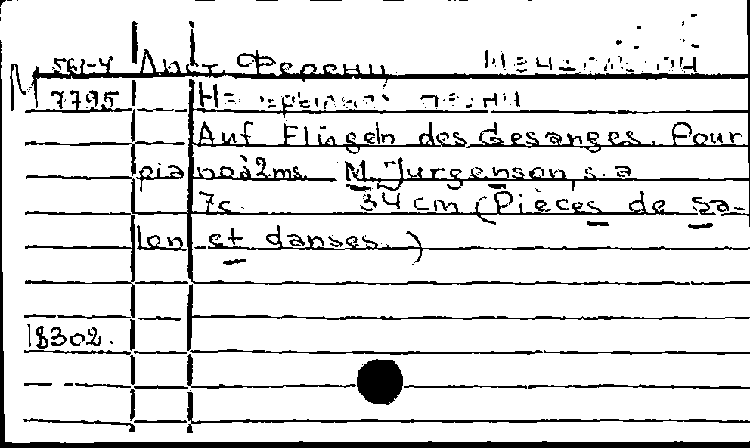 561-4 Лист Ференц Мендельсон
М 7795 На крыльях песни
Auf Flügeln des Gesanges. Pour
piano à 2 ms. M. Jurgenson, s.a
7c. 34 cm (Pièces de sa-
lon et danses.)
18302.